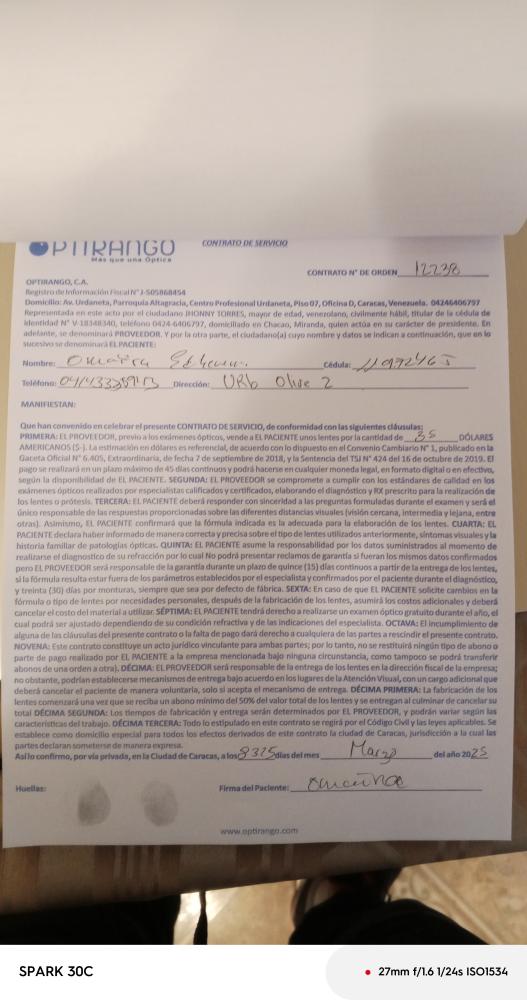 OPTIRANGO
Más que una Óptica
CONTRATO DE SERVICIO
CONTRATO N° DE ORDEN 12238
OPTIRANGO, C.A.
Registro de Información Fiscal N° J-505868454
Domicilio: Av. Urdaneta, Parroquia Altagracia, Centro Profesional Urdaneta, Piso 07, Oficina D, Caracas, Venezuela. 04246406797
Representada en este acto por el ciudadano JHONNY TORRES, mayor de edad, venezolano, civilmente hábil, titular de la cédula de
identidad N° V-18348340, teléfono 0424-6406797, domiciliado en Chacao, Miranda, quien actúa en su carácter de presidente. En
adelante, se denominará PROVEEDOR. Y por la otra parte, el ciudadano(a) cuyo nombre y datos se indican a continuación, que en lo
sucesivo se denominará EL PACIENTE:
Nombre: Cédula:
Teléfono: Dirección: URb Olive 2
MANIFIESTAN:
Que han convenido en celebrar el presente CONTRATO DE SERVICIO, de conformidad con las siguientes cláusulas:
PRIMERA: EL PROVEEDOR, previo a los exámenes ópticos, vende a EL PACIENTE unos lentes por la cantidad de 35 DÓLARES
AMERICANOS ($-). La estimación en dólares es referencial, de acuerdo con lo dispuesto en el Convenio Cambiario N° 1, publicado en la
Gaceta Oficial N° 6.405, Extraordinaria, de fecha 7 de septiembre de 2018, y la Sentencia del TSJ N° 424 del 16 de octubre de 2019. El
pago se realizará en un plazo máximo de 45 días continuos y podrá hacerse en cualquier moneda legal, en formato digital o en efectivo,
según la disponibilidad de EL PACIENTE. SEGUNDA: EL PROVEEDOR se compromete a cumplir con los estándares de calidad en los
exámenes ópticos realizados por especialistas calificados y certificados, elaborando el diagnóstico y RX prescrito para la realización de
los lentes o prótesis. TERCERA: EL PACIENTE deberá responder con sinceridad a las preguntas formuladas durante el examen y será el
único responsable de las respuestas proporcionadas sobre las diferentes distancias visuales (visión cercana, intermedia y lejana, entre
otras). Asimismo, EL PACIENTE confirmará que la fórmula indicada es la adecuada para la elaboración de los lentes. CUARTA: EL
PACIENTE declara haber informado de manera correcta y precisa sobre el tipo de lentes utilizados anteriormente, síntomas visuales y la
historia familiar de patologías ópticas. QUINTA: EL PACIENTE asume la responsabilidad por los datos suministrados al momento de
realizarse el diagnostico de su refracción por lo cual No podrá presentar reclamos de garantía si fueran los mismos datos confirmados
pero EL PROVEEDOR será responsable de la garantía durante un plazo de quince (15) días continuos a partir de la entrega de los lentes,
si la fórmula resulta estar fuera de los parámetros establecidos por el especialista y confirmados por el paciente durante el diagnóstico,
y treinta (30) días por monturas, siempre que sea por defecto de fábrica. SEXTA: En caso de que EL PACIENTE solicite cambios en la
fórmula o tipo de lentes por necesidades personales, después de la fabricación de los lentes, asumirá los costos adicionales y deberá
cancelar el costo del material a utilizar. SÉPTIMA: EL PACIENTE tendrá derecho a realizarse un examen óptico gratuito durante el año, el
cual podrá ser ajustado dependiendo de su condición refractiva y de las indicaciones del especialista. OCTAVA: El incumplimiento de
alguna de las cláusulas del presente contrato o la falta de pago dará derecho a cualquiera de las partes a rescindir el presente contrato.
NOVENA: Este contrato constituye un acto jurídico vinculante para ambas partes; por lo tanto, no se restituirá ningún tipo de abono o
parte de pago realizado por EL PACIENTE a la empresa mencionada bajo ninguna circunstancia, como tampoco se podrá transferir
abonos de una orden a otra). DÉCIMA: EL PROVEEDOR será responsable de la entrega de los lentes en la dirección fiscal de la empresa;
no obstante, podrían establecerse mecanismos de entrega bajo acuerdo en los lugares de la Atención Visual, con un cargo adicional que
deberá cancelar el paciente de manera voluntaria, solo si acepta el mecanismo de entrega. DÉCIMA PRIMERA: La fabricación de los
lentes comenzará una vez que se reciba un abono mínimo del 50% del valor total de los lentes y se entregan al culminar de cancelar su
total DÉCIMA SEGUNDA: Los tiempos de fabricación y entrega serán determinados por EL PROVEEDOR, y podrán variar según las
características del trabajo. DÉCIMA TERCERA: Todo lo estipulado en este contrato se regirá por el Código Civil y las leyes aplicables. Se
establece como domicilio especial para todos los efectos derivados de este contrato la ciudad de Caracas, jurisdicción a la cual las
partes declaran someterse de manera expresa.
Así lo confirmo, por vía privada, en la Ciudad de Caracas, a los días del mes Marzo del año 2025
Huellas: Firma del Paciente:
www.optirango.com
SPARK 30C
27mm f/1.6 1/24s ISO1534